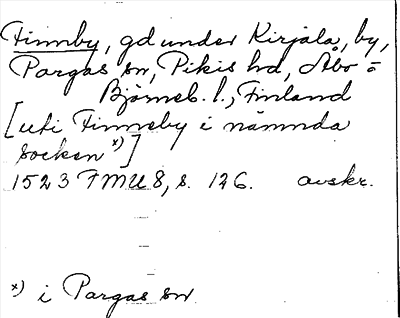 Finnby, gd under Kirjala, by,
Pargas sn, Pikis hd, Åbo o
Björneb. l., Finland
[uti Finneby i nämnda
socken x)]
1523 FMU 8, s. 126. avskr.
x) i Pargas sn